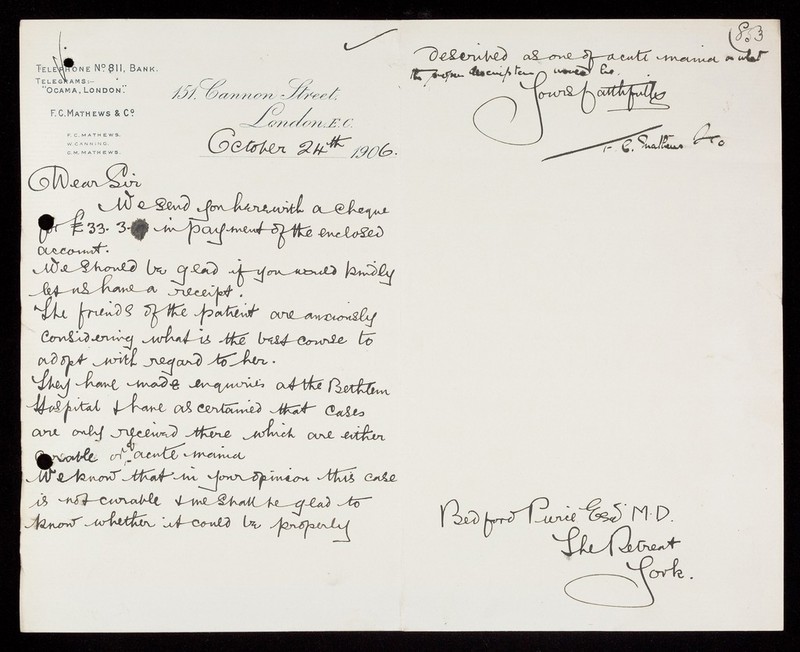 TELEPHONE Nº 811, BANK.
TELEGRAMS:-
"OCAMA, LONDON."
F.C. MATHEWS & Cº
F. C. MATHEWS.
W. CANNING.
C. M. MATHEWS.
151, Cannon Street,
London, E.C.
October 24th 1906.
Dear Sir
We send you herewith a cheque
for £33. 3. in payment of the enclosed
account.
We should be glad if you would kindly
let us have a receipt.
The friends of the patient are anxiously
considering what is the best course to
adopt with regard to her.
They have made enquiries at the Bethlem
Hospital & have ascertained that cases
are only received there which are either
curable or acute mania
We know that in your opinion this case
is not curable & we shall be glad to
know whether it could be properly
853
described as one of acute mania or what
the proper description would be.
Yours faithfully
F. C. Mathews & Co
Bedford Pierce Esq M.D.
The Retreat
York.